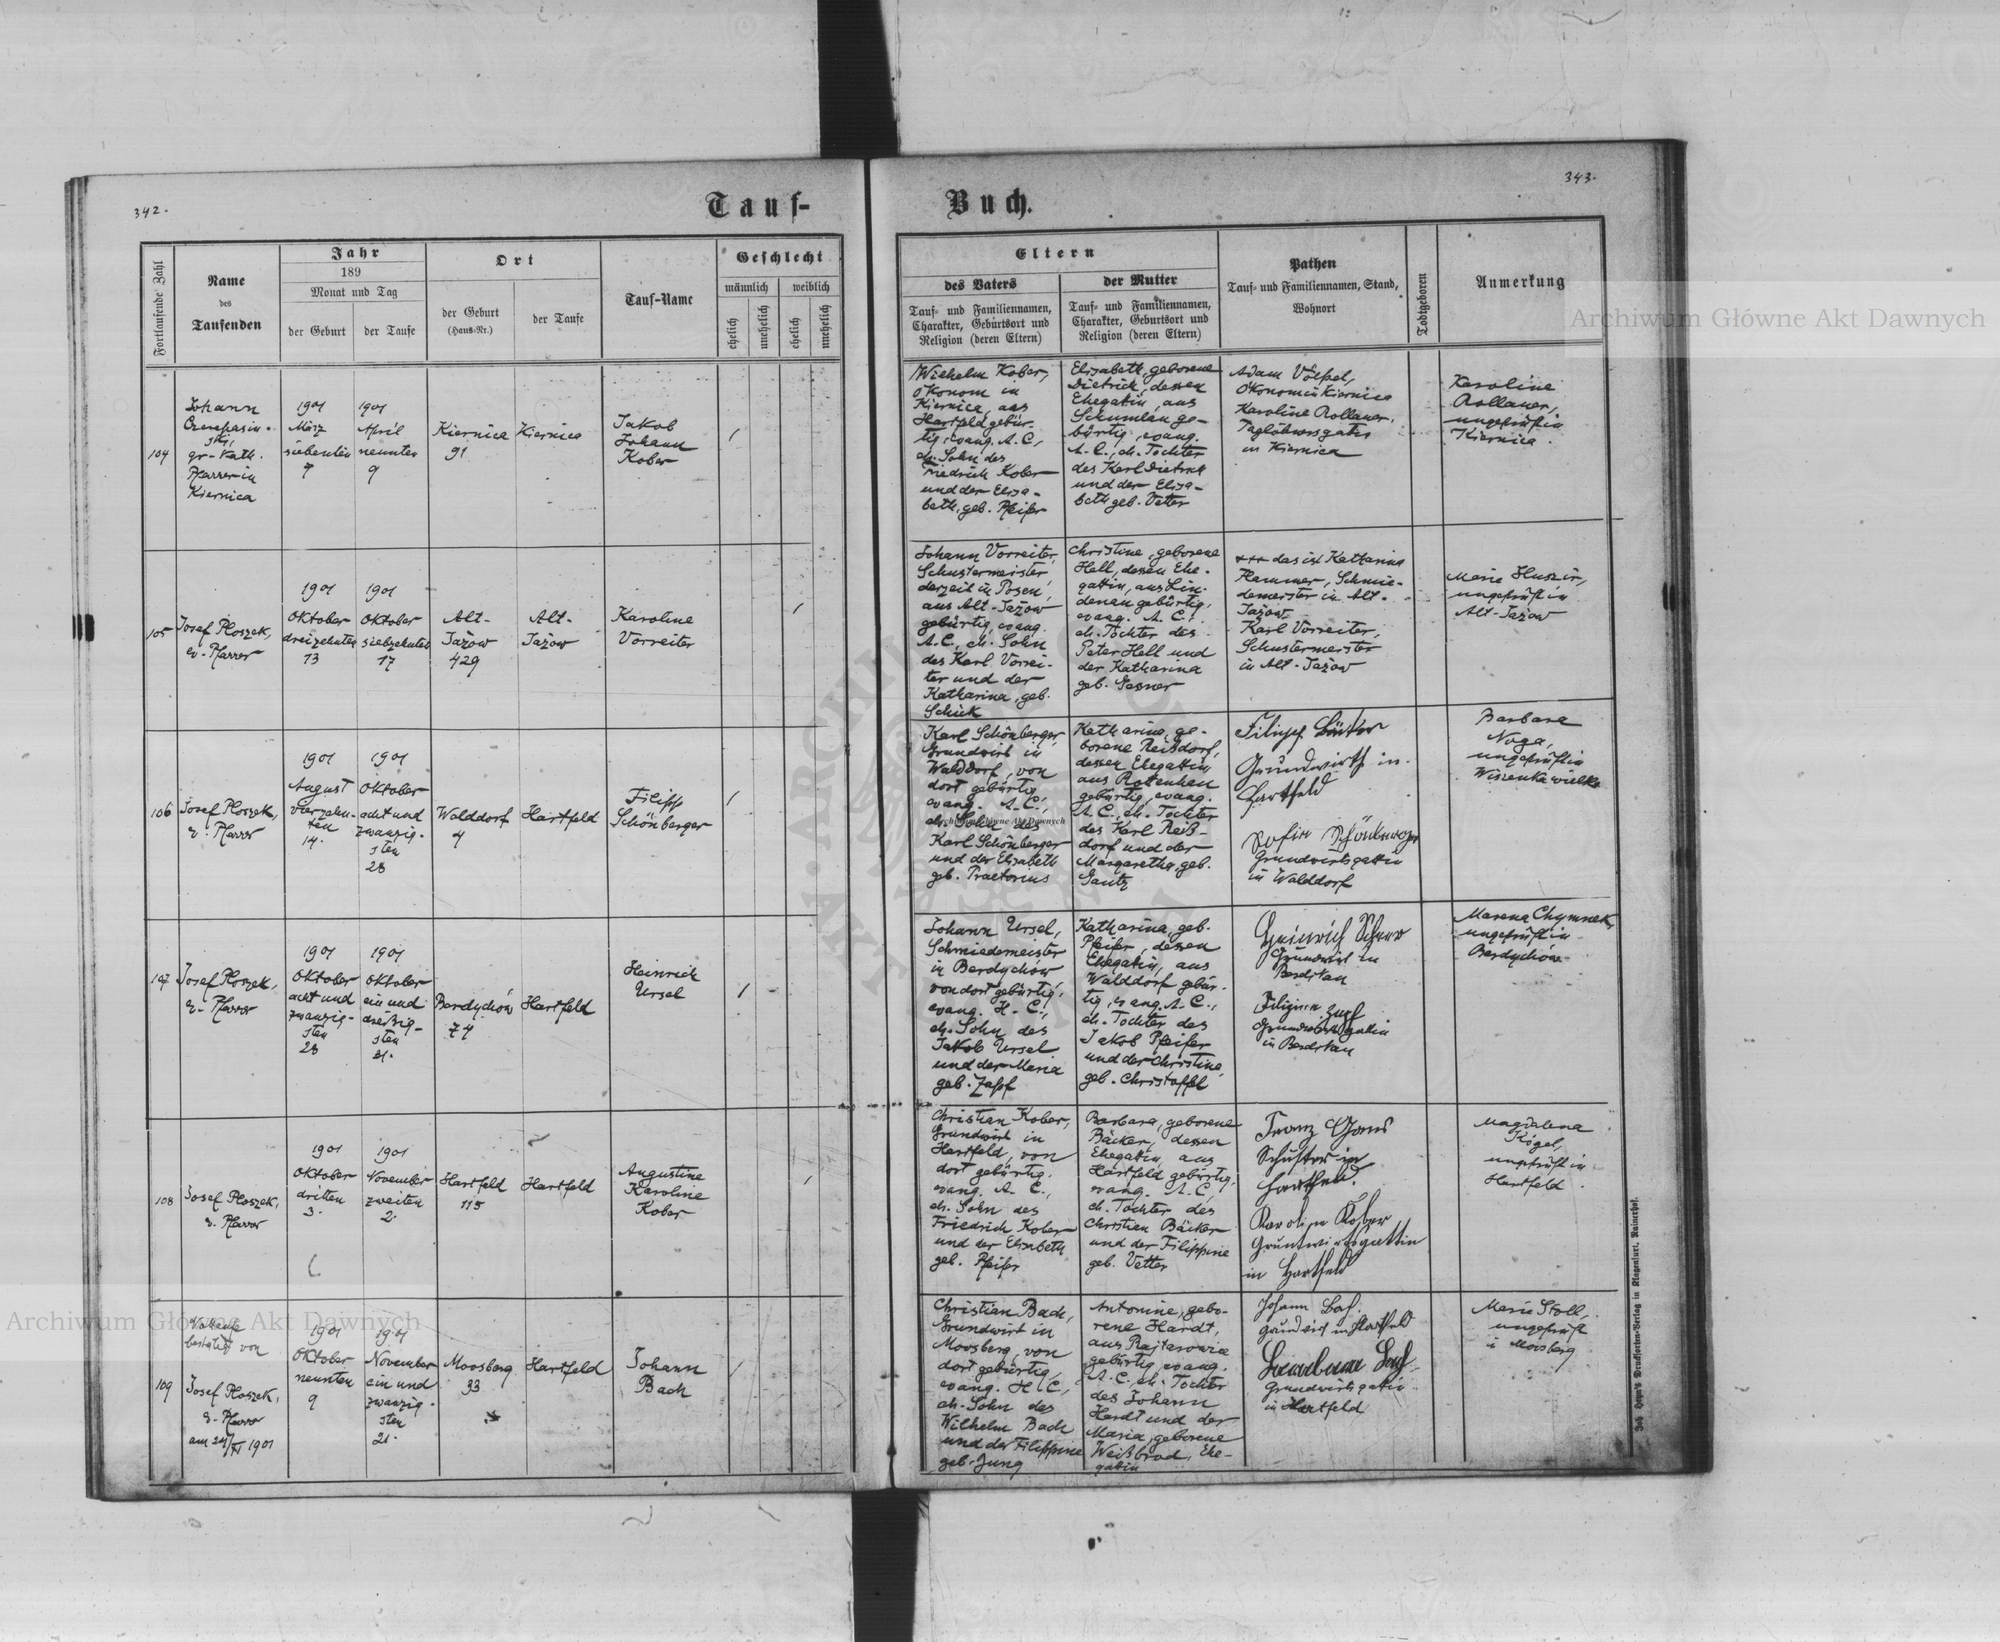 342.
343.
Tauf-
Buch.
Fortlaufende Zahl
Name
des
Taufenden
Jahr
189
Monat und Tag
der Geburt
der Taufe
Ort
der Geburt
(Haus-Nr.)
der Taufe
Tauf-Name
Geschlecht
männlich
weiblich
ehelich
unehelich
ehelich
unehelich
Eltern
des Vaters
Tauf- und Familiennamen,
Charakter, Geburtsort und
Religion (deren Eltern)
der Mutter
Tauf- und Familiennamen,
Charakter, Geburtsort und
Religion (deren Eltern)
Pathen
Tauf- und Familiennamen, Stand,
Wohnort
Todtgeboren
Anmerkung
104
Johann
gr-Kath.
Pfarrer in
Kiernica
1901
März
siebenten
7
1901
April
neunten
9
Kiernica
91
Kiernica
Jakob
Johann
Kober
Wilhelm Kober,
Ökonom in
Kiernica, aus
Hartfeld gebür-
tig, evang. A.C.,
eh. Sohn des
Friedrich Kober
und der Elisa-
beth, geb. Pfeifer
Elisabeth, geborene
Dietrich, dessen
Ehegattin, aus
ge-
bürtig, evang.
A.C., eh. Tochter
des Karl Dietrich
und der Elisa-
beth geb. Vetter
Adam Völpel,
Ökonom in Kiernica
Karoline Rollauer,
Taglöhnersgattin
in Kiernica
Karoline
Rollauer,
ungeprüft in
Kiernica.
105
Josef Ploszek,
ev. Pfarrer
1901
Oktober
dreizehnten
13
1901
Oktober
siebzehnten
17
Alt-
Jażow
429
Alt-
Jażow
Karoline
Vorreiter
Johann Vorreiter,
Schustermeister
derzeit in Posen,
aus Alt-Jażow
gebürtig, evang.
A.C., eh. Sohn
des Karl Vorrei-
ter und der
Katharina, geb.
Schick
Christine, geborene
Hell, dessen Ehe-
gattin, aus Lin-
denau gebürtig,
evang. A.C.,
eh. Tochter des
Peter Hell und
der Katharina
geb. Gesner
+++ das ist Katharina
Hammer, Schmie-
demeister in Alt-
Jażow,
Karl Vorreiter,
Schustermeister
in Alt-Jażow
Marie
ungeprüft in
Alt-Jażow
106
Josef Ploszek,
ev. Pfarrer
1901
August
vierzehn-
ten
14.
1901
Oktober
acht und
zwanzig-
sten
28
Walddorf
4
Hartfeld
Filipp
Schönberger
Karl Schönberger
Grundwirt in
Walddorf, von
dort gebürtig,
evang. A.C.,
eh. Sohn des
Karl Schönberger
und der Elisabeth
geb. Praetorius
Katharina, ge-
borene Reißdorf,
dessen Ehegattin
aus Rottenhan
gebürtig, evang.
A.C., eh. Tochter
des Karl Reiß-
dorf und der
Margaretha, geb.
Gantz
Filipp
Grundwirth in
Hartfeld
Sofie Schönberger
Grundwirtsgattin
in Walddorf
Barbara
Noga,
ungeprüft in
Wiszenka wielka
107
Josef Ploszek,
ev. Pfarrer
1901
Oktober
acht und
zwanzig-
sten
28
1901
Oktober
ein und
dreißig-
sten
31.
Berdychów
74
Hartfeld
Heinrich
Ursel
Johann Ursel,
Schmiedemeister
in Berdychów
von dort gebürtig,
evang. H.C.,
eh. Sohn des
Jakob Ursel
und der Maria
geb. Zapf
Katharina, geb.
Pfeifer, dessen
Ehegattin, aus
Walddorf gebür-
tig, evang. A.C.,
eh. Tochter des
Jakob Pfeifer
und der Christine,
geb. Christoffel
Heinrich
Grundwirt in
Berdikau
Zapf
Grundwirtsgattin
in Berdikau
Marena Chymnek,
ungeprüft in
Berdychów
108
Josef Ploszek,
ev. Pfarrer
1901
Oktober
dritten
3.
1901
November
zweiten
2.
Hartfeld
115
Hartfeld
Augustine
Karoline
Kober
Christian Kober,
Grundwirt in
Hartfeld, von
dort gebürtig,
evang. A.C.,
eh. Sohn des
Friedrich Kober
und der Elisabeth
geb. Pfeifer
Barbara, geborene
Bäcker, dessen
Ehegattin, aus
Hartfeld gebürtig,
evang. A.C.,
eh. Tochter des
Christian Bäcker
und der Filippine
geb. Vetter
Franz Gans
Schuster in
Hartfeld.
Karoline Kober
Gruntwirtsgattin
in Hartfeld
Magdalena
Kögel,
ungeprüft in
Hartfeld.
109
bestätigt von
Josef Ploszek,
ev. Pfarrer
am 24/XI 1901
1901
Oktober
neunten
9
1901
November
ein und
zwanzig-
sten
21.
Moosberg
33
Hartfeld
Johann
Bach
Christian Bach,
Grundwirt in
Moosberg, von
dort gebürtig,
evang. H.C.,
eh. Sohn des
Wilhelm Bach
und der Filippine
geb. Jung
Antonine, gebo-
rene Hardt,
aus Rajtarowice
gebürtig, evang.
A.C., eh. Tochter
des Johann
Hardt und der
Maria, geborene
Weißbrod, Ehe-
gattin
Johann Bach.
Grundwirt in Hartfeld
Bach
Grundwirtsgattin
in Hartfeld
Marie Stoll,
ungeprüft
in Moosberg
Joh. Heyn's Drucksorten-Verlag in Klagenfurt, Rainerhof.
Archiwum Główne Akt Dawnych
Archiwum Główne Akt Dawnych
Archiwum Główne Akt Dawnych